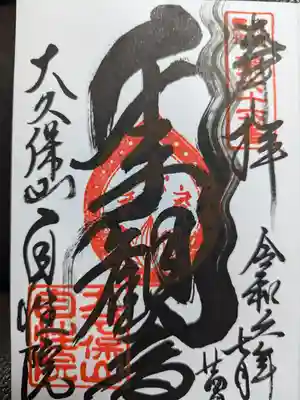 奉拝
令和六年
七月
千手観音
大久保山
自性院
大久保山
自性院